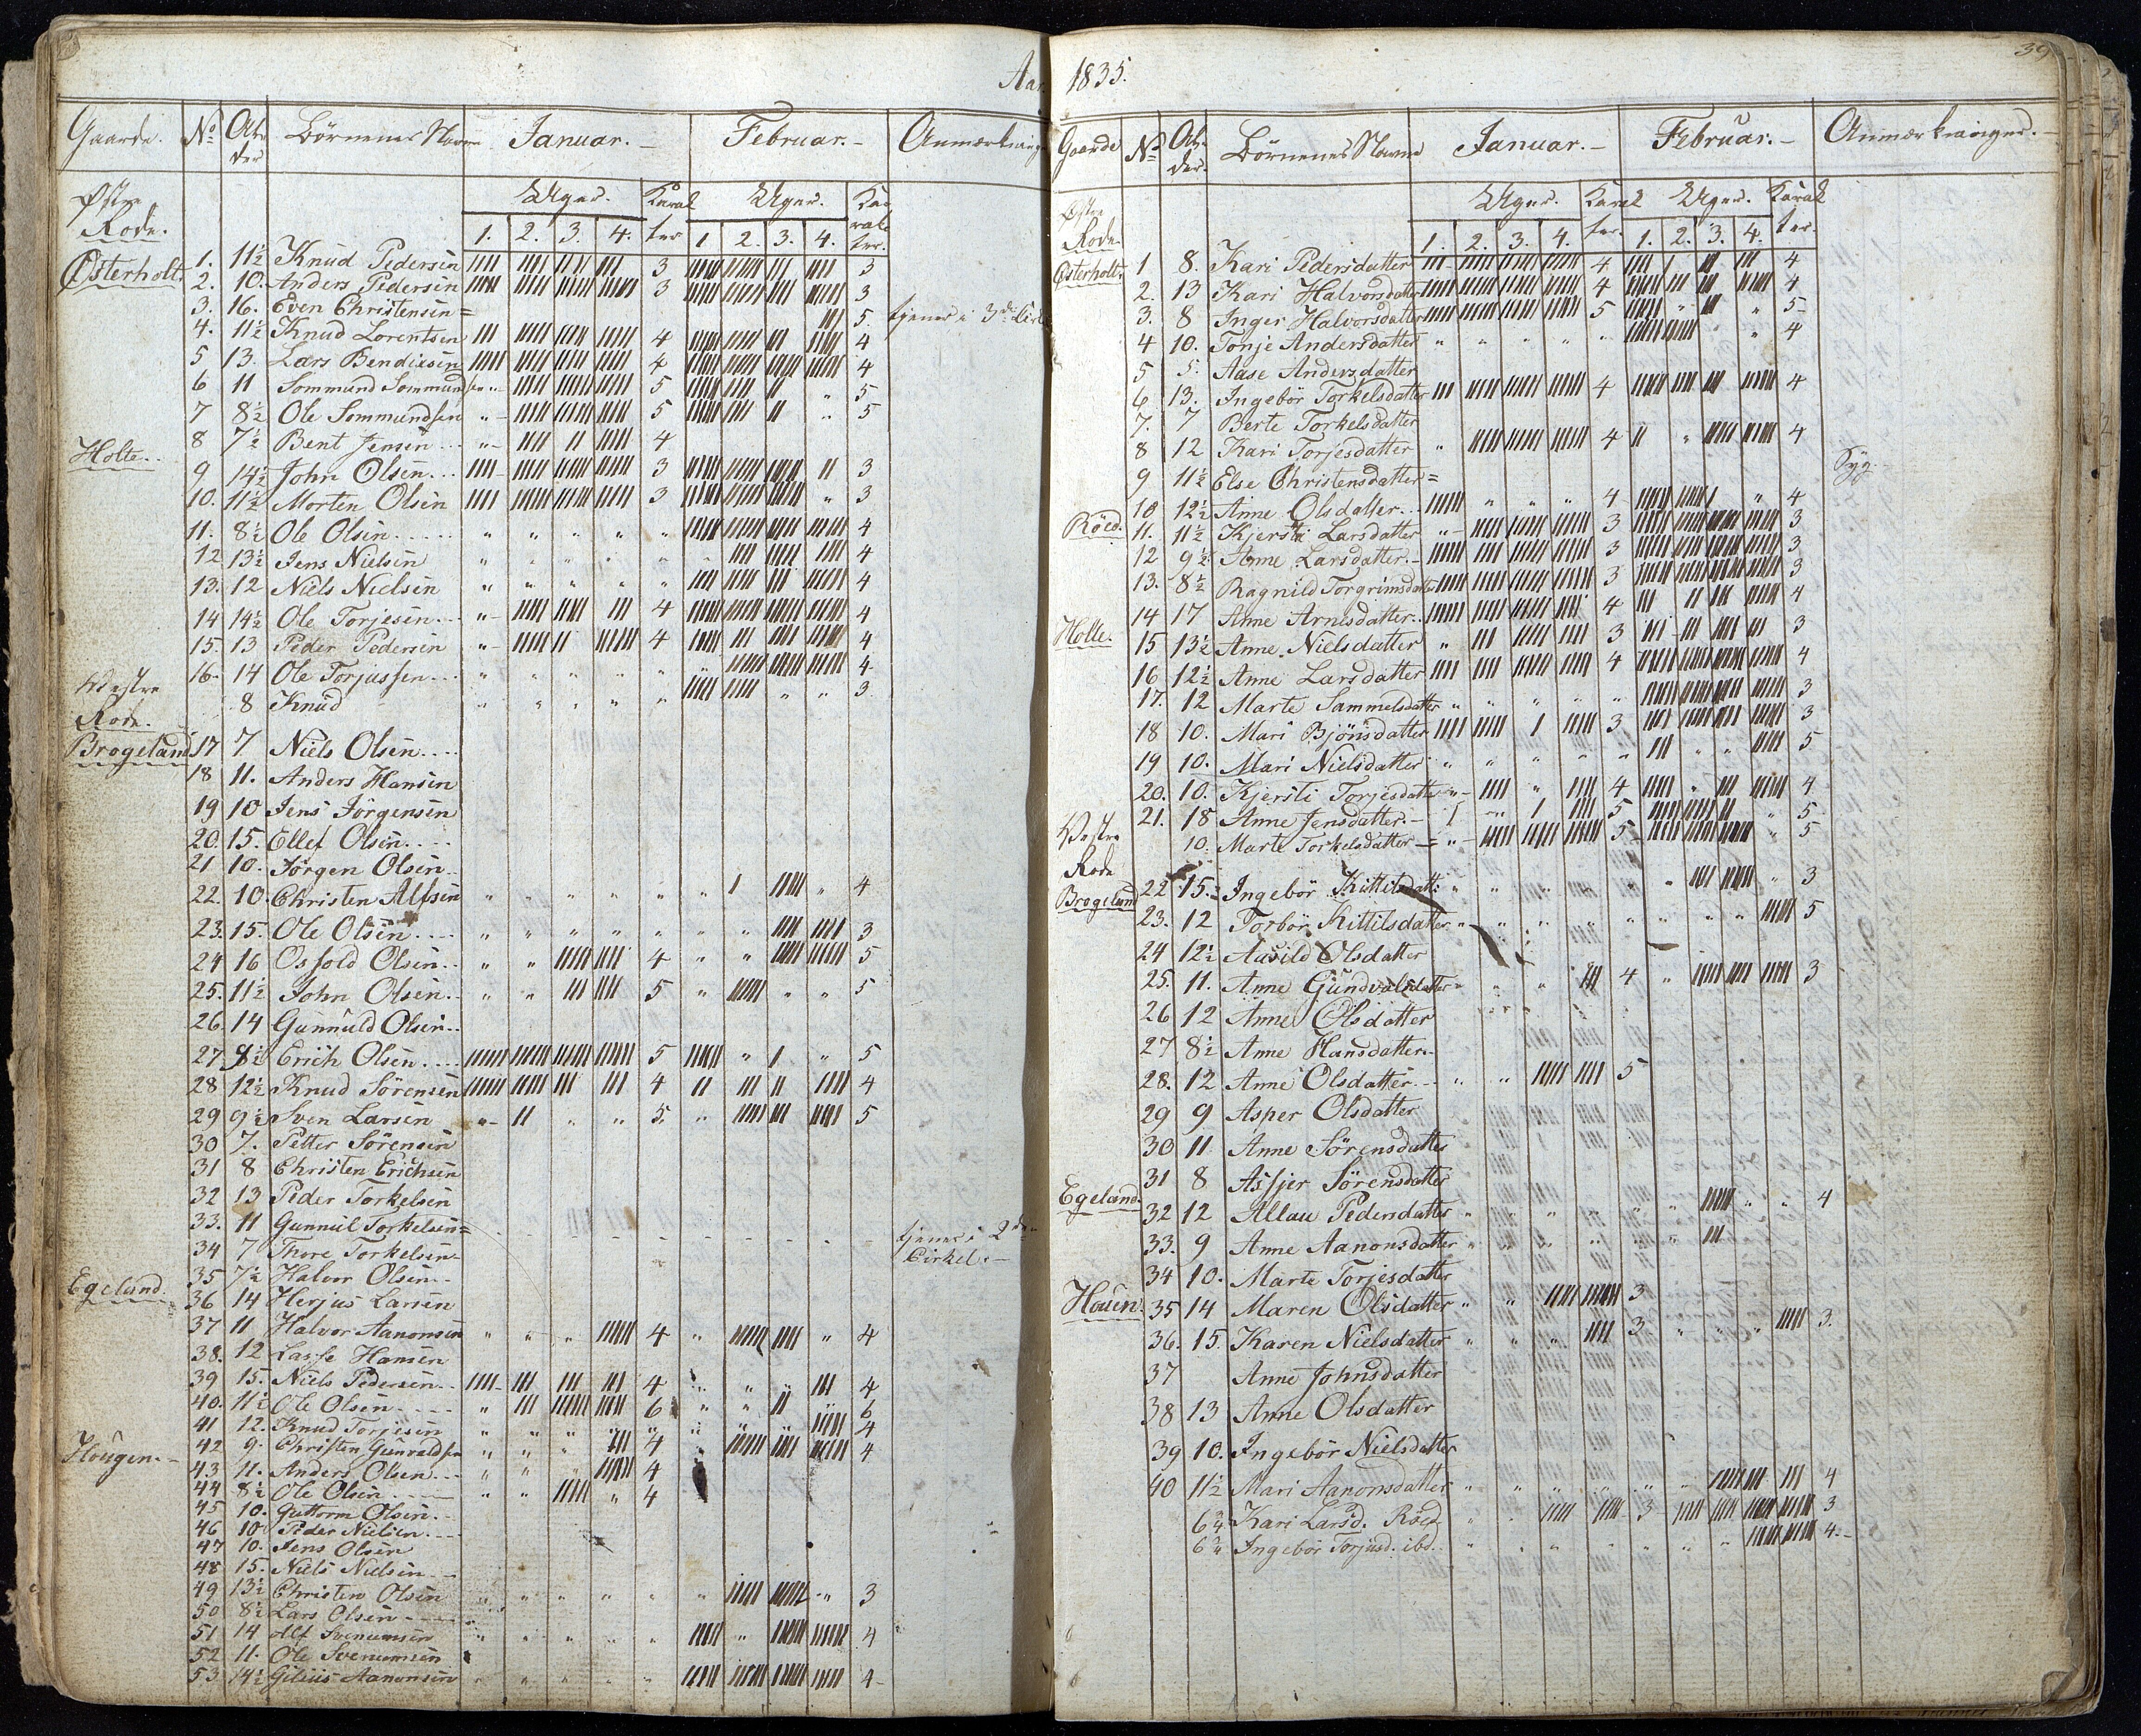 Aar 1835.
39
Gaarde. No Alder Börnenes Navne Januar. Februar. Anmærkninger
Uger. Karakter Uger. Karakter.
1. 2. 3. 4. 1 2. 3. 4.
Østre Rode.
Østerholt.
1. 11½ Knud Pedersen 3 3
2. 10. Anders Pedersen 3 3
3. 16. Even Christensen = 5. tjener i 3die
4. 11½ Knud Lorentsen 4 4
5 13. Lars Bendixsen 4 4
6 11 Sommund Sommundsen 5 5
7 8½ Ole Sommundsen 5 5
8 7½ Bent Jensen 4
Holte.
9 14½ John Olsen 3 3
10. 11½ Morten Olsen 3 3
11. 8½ Ole Olsen 4
12 13½ Jens Nielsen 4
13. 12 Niels Nielsen 4
14 14½ Ole Torjesen 4 4
15. 13 Peder Pedersen 4 4
16. 14 Ole Torjussen 4
8 Knud 3
Vestre Rode.
Brogeland
17 7 Niels Olsen
18 11. Anders Hansen
19 10 Jens Jörgensen
20. 15. Ellef Olsen
21 10. Jörgen Olsen
22. 10. Christen Alfsen 4
23. 15. Ole Olsen 3
24 16 Osfold Olsen 4 5
25. 11½ John Olsen 5 5
26. 14 Gunnuld Olsen
27 8½ Erich Olsen 5 5
28 12½ Knud Sörensen 4 4
29 9½ Sven Larsen 5. 5
30 7. Petter Sörensen
31 8 Christen Erichsen
32 13 Peder Torkelsen
33. 11 Gunnul Torkelsen = tjener i 2den Cirkel.
34 7 Thore Torkelsen
35 7½ Halvor Olsen
Egeland.
36 14 Herjus Larsen
37 11 Halvor Aanonsen 4 4
38. 12 Lasse Hansen
39 15. Niels Pedersen 4 4
40. 11½ Ole Olsen 6 6
41 12. Knud Torjesen 4
Hougen.
42 9. Christen Gunvaldsen 4 4
43 11. Anders Olsen 4
44 8½ Ole Olsen 4
45 10. Guttorm Olsen
46 10 Peder Nielsen
47 10. Jens Olsen
48 15. Niels Nielsen
49 13½ Christen Olsen 3
50 8½ Lars Olsen
51 14 Svenumsen 4
52 11. Ole Svenumsen
53 14½ Aanonsen 4
Gaarde No Alder. Börnenes Navne Januar. Februar. Anmærkninger.
Uger. Karakter. Uger. Karakter.
1. 2. 3. 4. 1. 2. 3. 4.
Østre Rode.
Østerholt.
1 8. Kari Pedersdatter 4 4
2. 13 Kari Halvorsdatter 4 4
3. 8 Inger Halvorsdatter 5 5
4 10. Tonje Andersdatter 4
5 5. Aase Andersdatter
6 13. Ingebör Torkelsdatter 4 4
7. 7 Berte Torkelsdatter
8 12 Kari Torjesdatter 4 4
9 11½ Else Christensdatter = Syg.
10 12½ Anne Olsdatter 4 4
Röed.
11. 11½ Kjersti Larsdatter 3 3
12 9½ Anne Larsdatter 3 3
13. 8½ Ragnild Torgrimsdatter 3 3
14 17 Anne Arnesdatter 4 4
Holte.
15 13½ Anne Nielsdatter 3 3
16 12½ Anne Larsdatter 4 4
17. 12 Marte Sammelsdatter 3
18 10. Mari Bjönsdatter 3 3
19 10. Mari Nielsdatter 5
20. 10. Kjersti Torjesdatter 4 4
21. 18 Anne Jensdatter 5 5
10. Marte Torkelsdatter 5 5
Vestre Rode
Brogeland
22 15. Ingebör Kittilsdatt: 3
23. 12 Torbör Kittilsdatter 5
24 12½ Aasild Olsdatter
25. 11. Anne Gundvalsdatter 4 3
26 12 Anne Olsdatter
27 8½ Anne Hansdatter
28. 12 Anne Olsdatter 5
29 9 Asper Olsdatter
30 11 Anne Sörensdatter
31 8 Assjer Sörensdatter
Egeland.
32 12 Allau Pedersdatter 4
33. 9 Anne Aanonsdatter
34 10. Marte Torjesdatter
Houen.
35 14 Maren Olsdatter 3
36. 15. Karen Nielsdatter 3 3.
37 Anne Johnsdatter
38 13 Anne Olsdatter
39 10. Ingebör Nielsdatter
40 11½ Mari Aanonsdatter 4
6¾ Kari Larsd. Röed 3 3
6¾ Ingebör Torjusd. ibd. 4.